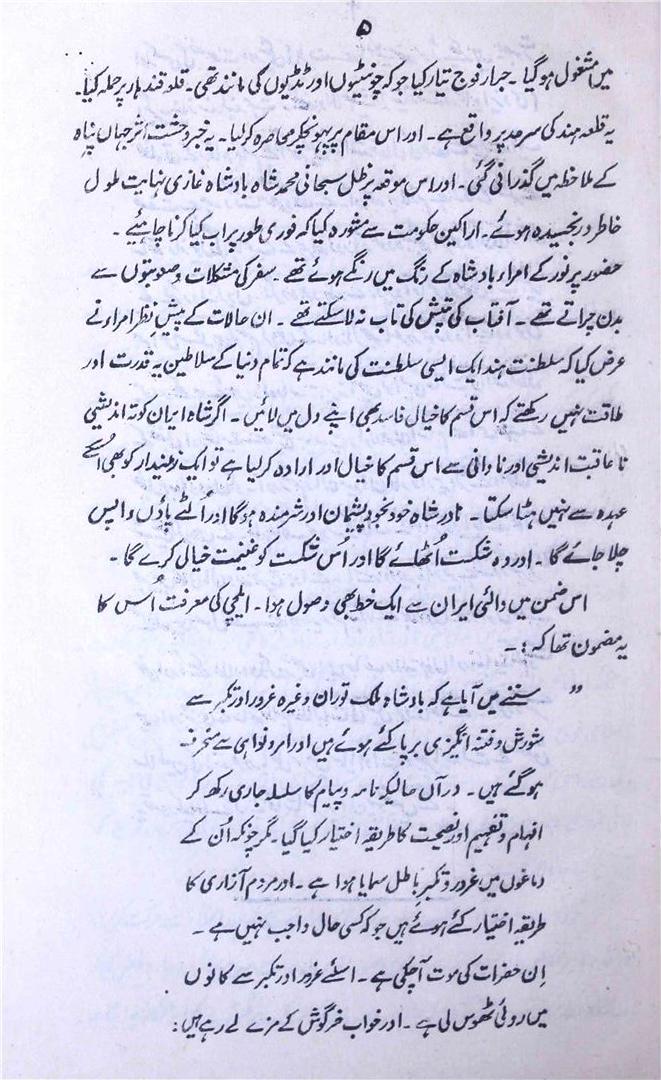 ۵
میں مشغول ہو گیا ۔ جرار فوج تیار کیا جو کہ چونٹیوں اور ٹڈیوں کی مانند تھی ۔ قلعہ قندہار پر حملہ کیا۔
یہ قلعہ ہند کی سرحد پر واقع ہے ۔ اور اس مقام پر پہونچکر محاصرہ کر لیا ۔ یہ خبر وحشت اثر جہاں پناہ
کے ملاحظہ میں گذرانی گئی ۔ اور اس موقعہ پر ظل سبحانی محمد شاہ بادشاہ غازی نہایت ملول
خاطر و رنجیدہ ہوئے ۔ اراکین حکومت سے مشورہ کیا کہ فوری طور پر اب کیا کرنا چاہئیے ۔
حضور پر نور کے امراء بادشاہ کے رنگ میں رنگے ہوئے تھے ۔ سفر کی مشکلات و صعوبتوں سے
بدن چراتے تھے ۔ آفتاب کی تپش کی تاب نہ لا سکتے تھے ۔ ان حالات کے پیش نظر امراء نے
عرض کیا کہ سلطنت ہند ایک ایسی سلطنت کی مانند ہے کہ تمام دنیا کے سلاطین یہ قدرت اور
طاقت نہیں رکھتے کہ اس قسم کا خیال فاسد بھی اپنے دل میں لائیں ۔ اگر شاہ ایران کوتہ اندیشی
نا عاقبت اندیشی اور نادانی سے اس قسم کا خیال اور ارادہ کر لیا ہے تو ایک زمیندار کو بھی اسکے
عہدہ سے نہیں ہٹا سکتا ۔ نادر شاہ خود بخود پشیمان اور شرمندہ ہو گا اور اُلٹے پاؤں واپس
چلا جائے گا ۔ اور وہ شکست اُٹھائے گا اور اُس شکست کو غنیمت خیال کرے گا ۔
اس ضمن میں والئی ایران سے ایک خط بھی وصول ہوا ۔ ایلچی کی معرفت اُس کا
یہ مضمون تھا کہ :۔
” سننے میں آیا ہے کہ بادشاہ ملک توران وغیرہ غرور اور تکبر سے
شورش و فتنہ انگیزی برپا کئے ہوئے ہیں اور امر و نواہی سے منحرف
ہو گئے ہیں ۔ در آں حالیکہ نامہ و پیام کا سلسلہ جاری رکھ کر
افہام و تفہیم اور نصیحت کا طریقہ اختیار کیا گیا ۔ مگر چونکہ اُن کے
دماغوں میں غرور و تکبر باطل سمایا ہوا ہے ۔ اور مردم آزاری کا
طریقہ اختیار کئے ہوئے ہیں جو کہ کسی حال واجب نہیں ہے ۔
اِن حضرات کی موت آ چکی ہے ۔ اسلئے غرور اور تکبر سے کانوں
میں روئی ٹھوس لی ہے ۔ اور خواب خرگوش کے مزے لے رہے ہیں :